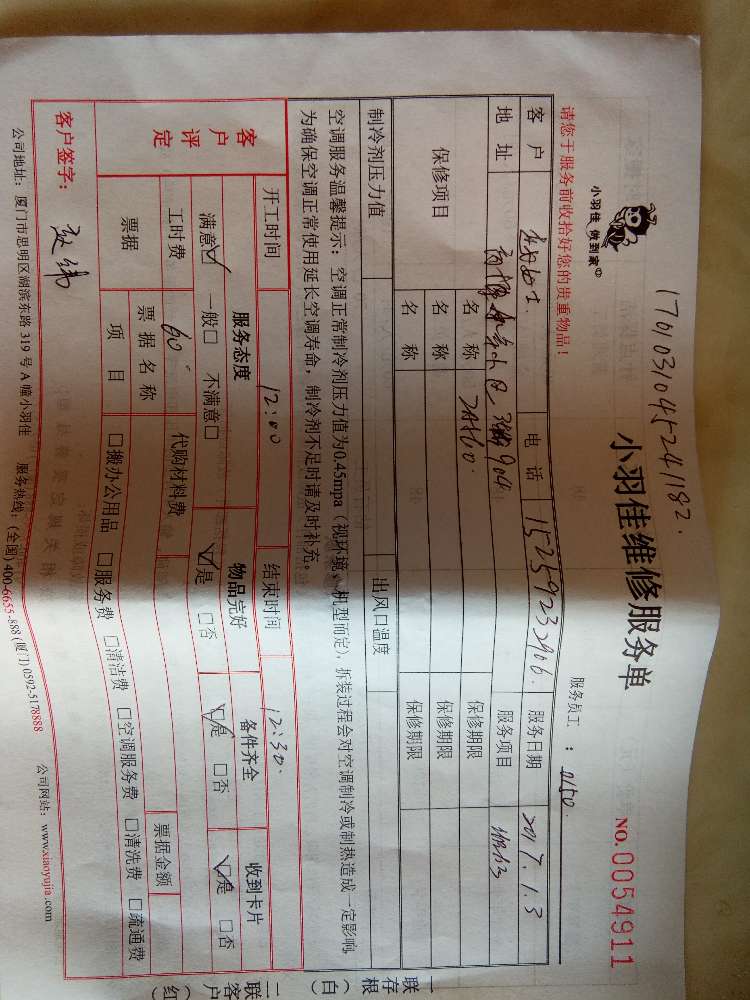 17010310452411​82.
小羽佳 做到家
小羽佳维修服务单
服务员工： 2150.
NO.0054911
请您于服务前收拾好您的贵重物品！
客户 电话 15259232906. 服务日期 2017.1.3
地址 904 服务项目
保修项目 名称 保修期限
名称 保修期限
名称 保修期限
制冷剂压力值 出风口温度
空调服务温馨提示：空调正常制冷剂压力值为0.45mpa（视环境、机型而定），拆装过程会对空调制冷或制热造成一定影响，
为确保空调正常使用延长空调寿命，制冷剂不足时请及时补充。
客户评定 开工时间 12:00 结束时间 12:30.
服务态度 物品完好 备件齐全 收到卡片
满意☑ 一般□ 不满意□ ☑是 □否 ☑是 □否 ☑是 □否
工时费 60 代购材料费
票据 票据名称 票据金额
项目 □搬办公用品 □服务费 □清洁费 □空调服务费 □清洗费 □疏通费
客户签字：
公司地址：厦门市思明区湖滨东路319号A幢小羽佳 服务热线：(全国)400-6655-888(厦门)0592-5178888 公司网站：www.xiaoyujia.com
一存根联（白）
二客户联（红